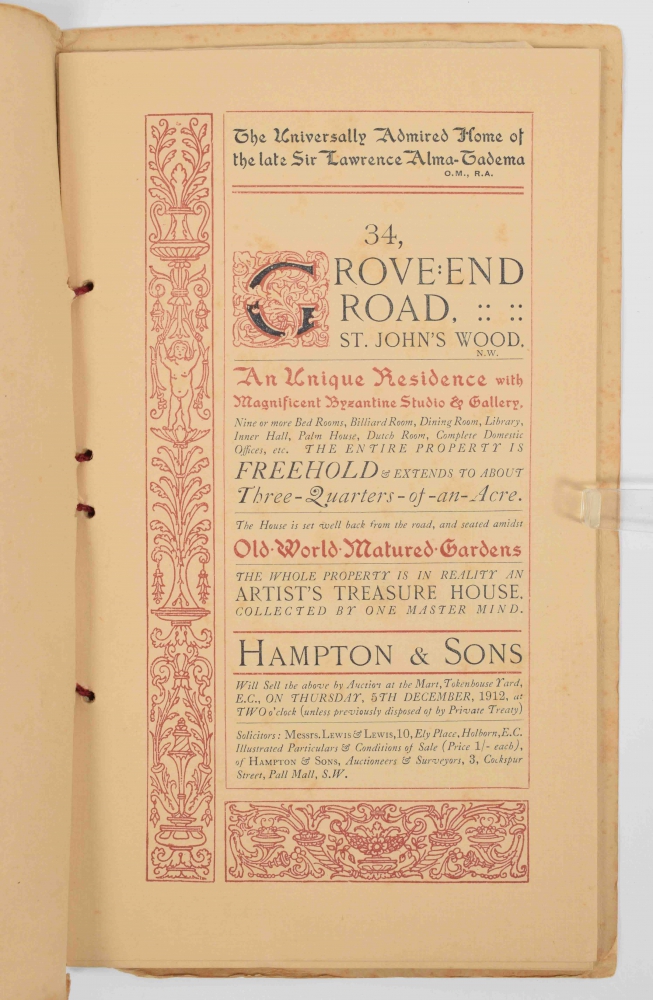 The Universally Admired Home of
the late Sir Lawrence Alma-Tadema
O.M., R.A.
34,
GROVE:END
ROAD, :: ::
ST. JOHN'S WOOD,
N.W.
An Unique Residence with
Magnificent Byzantine Studio & Gallery,
Nine or more Bed Rooms, Billiard Room, Dining Room, Library,
Inner Hall, Palm House, Dutch Room, Complete Domestic
Offices, etc. THE ENTIRE PROPERTY IS
FREEHOLD & EXTENDS TO ABOUT
Three-Quarters-of-an-Acre.
The House is set well back from the road, and seated amidst
Old-World-Matured-Gardens
THE WHOLE PROPERTY IS IN REALITY AN
ARTIST'S TREASURE HOUSE,
COLLECTED BY ONE MASTER MIND.
HAMPTON & SONS
Will Sell the above by Auction at the Mart, Tokenhouse Yard,
E.C., ON THURSDAY, 5TH DECEMBER, 1912, at
TWO o'clock (unless previously disposed of by Private Treaty)
Solicitors: Messrs. LEWIS & LEWIS, 10, Ely Place, Holborn, E.C.
Illustrated Particulars & Conditions of Sale (Price 1/- each),
of HAMPTON & SONS, Auctioneers & Surveyors, 3, Cockspur
Street, Pall Mall, S.W.